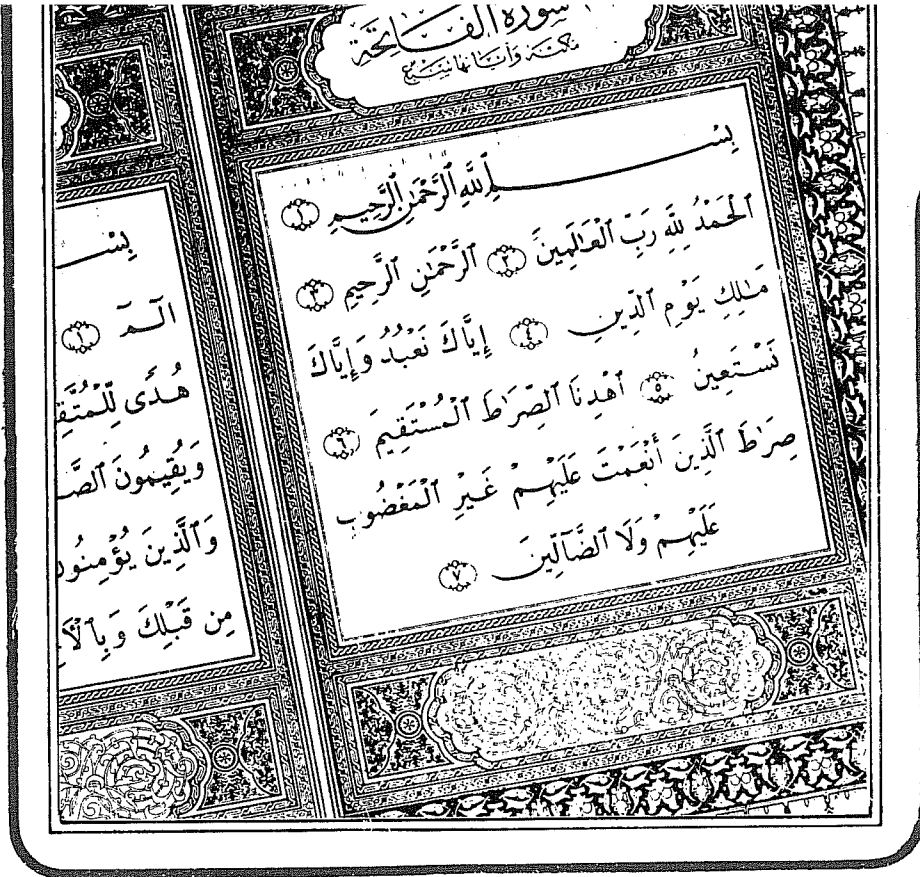 سورة الفاتحة
مكية وآياتها سبع
بِسْــــمِ ٱللَّهِ ٱلرَّحْمَٰنِ ٱلرَّحِيمِ ١
ٱلْحَمْدُ لِلَّهِ رَبِّ ٱلْعَٰلَمِينَ ٢ ٱلرَّحْمَٰنِ ٱلرَّحِيمِ ٣
مَٰلِكِ يَوْمِ ٱلدِّينِ ٤ إِيَّاكَ نَعْبُدُ وَإِيَّاكَ
نَسْتَعِينُ ٥ ٱهْدِنَا ٱلصِّرَٰطَ ٱلْمُسْتَقِيمَ ٦
صِرَٰطَ ٱلَّذِينَ أَنْعَمْتَ عَلَيْهِمْ غَيْرِ ٱلْمَغْضُوبِ
عَلَيْهِمْ وَلَا ٱلضَّآلِّينَ ٧
بِسْـ
الٓمٓ ١
هُدًى لِّلْمُتَّقِـ
وَيُقِيمُونَ ٱلصَّـ
وَٱلَّذِينَ يُؤْمِنُونَ
مِن قَبْلِكَ وَبِٱلْأَ